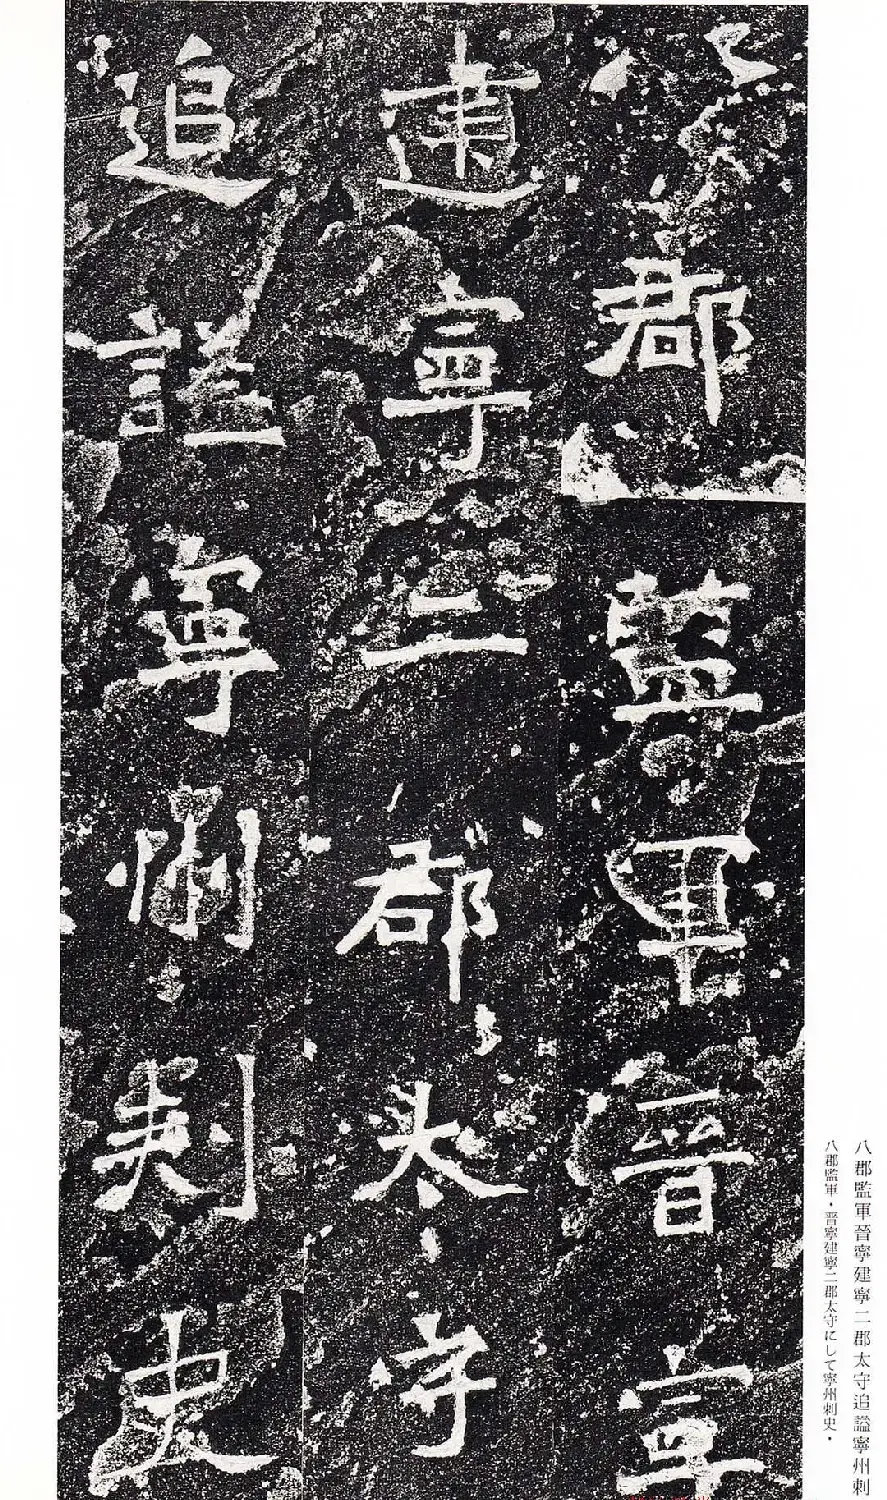 八郡監軍晉寧建寧二郡太守追謚寧州刺
八郡監軍・晉寧建寧二郡太守にして寧州刺史・
八郡監軍晉寧
建寧二郡太守
追謚寧州刺史